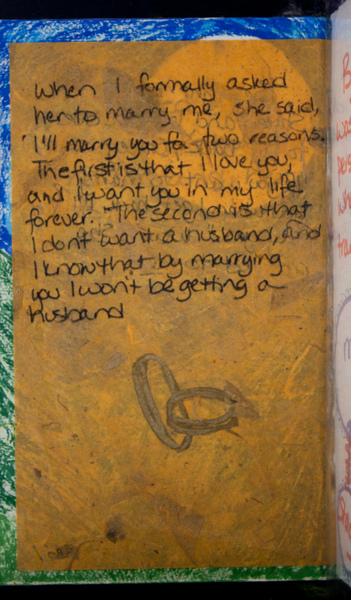 When I formally asked
her to marry me, she said,
"I'll marry you for two reasons.
The first is that I love you,
and I want you in my life
forever. The second is that
I don't want a husband, and
I know that by marrying
you I won't be getting a
husband